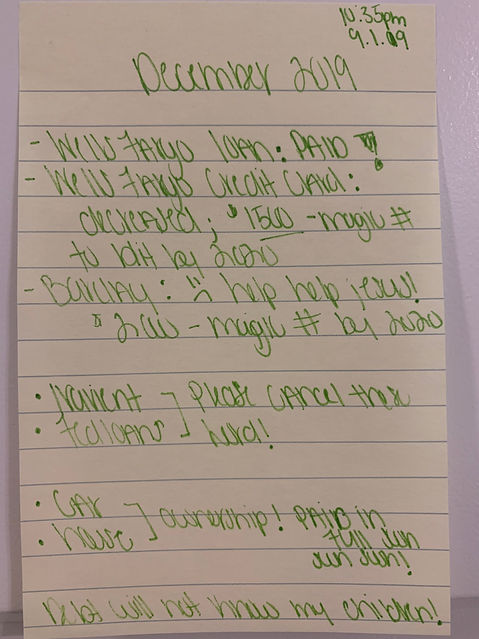 10:35pm
9.1.19
December 2019
- Wells Fargo loan: PAID !
- Wells Fargo Credit Card:
decreased; $1500 - magic #
to hit by 2020
- Barclay: :( help help jesus!
$2000 - magic # by 2020
• Navient ] Please cancel these
• fedloans ] Lord!
• CAR
• house ] ownership! PAID in
full Jun
Jun Jun!
Debt will not know my children!